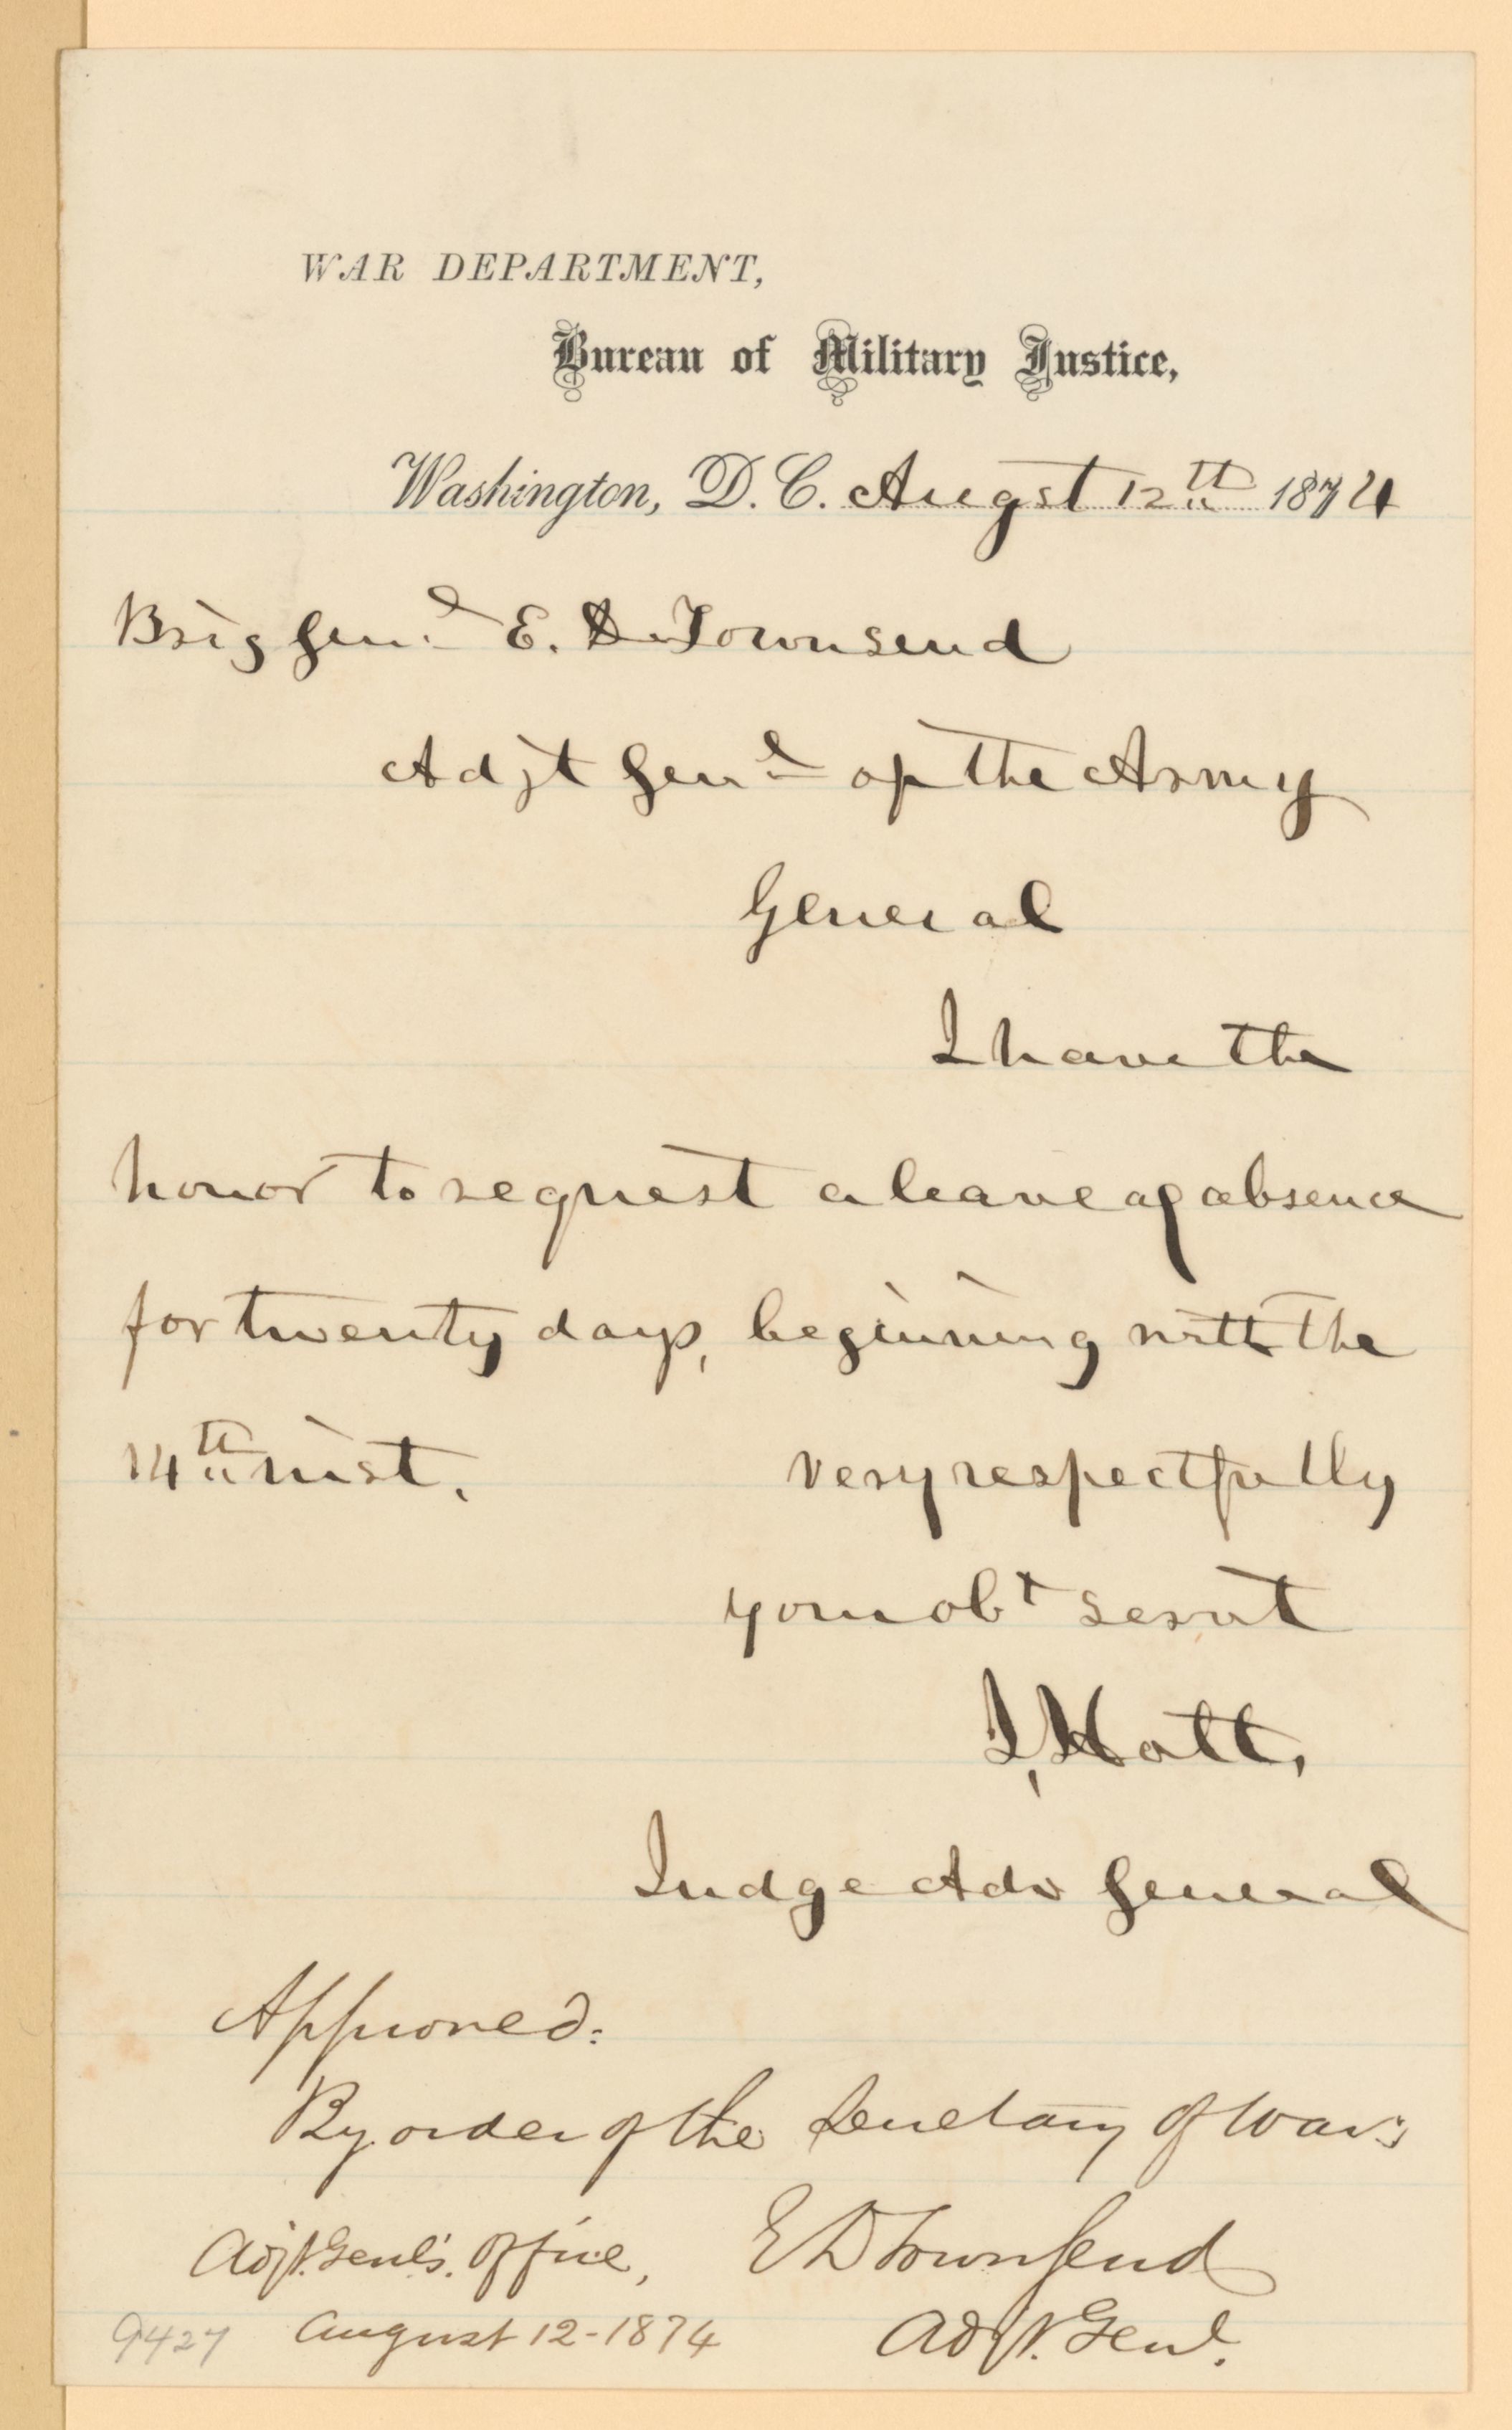 WAR DEPARTMENT,
Bureau of Military Justice,
Washington, D. C. Augst 12th 1874
Brig Genl E. D. Townsend
Adjt Genl of the Army
General
I have the
honor to request a leave of absence
for twenty days, beginning with the
14th inst. very respectfully
your obt servt
J. Holt,
Judge Adv General
Approved:
By order of the Secretary of War:
Adjt. Genl's. Office, E D Townsend
9427 August 12-1874 Adjt. Genl.